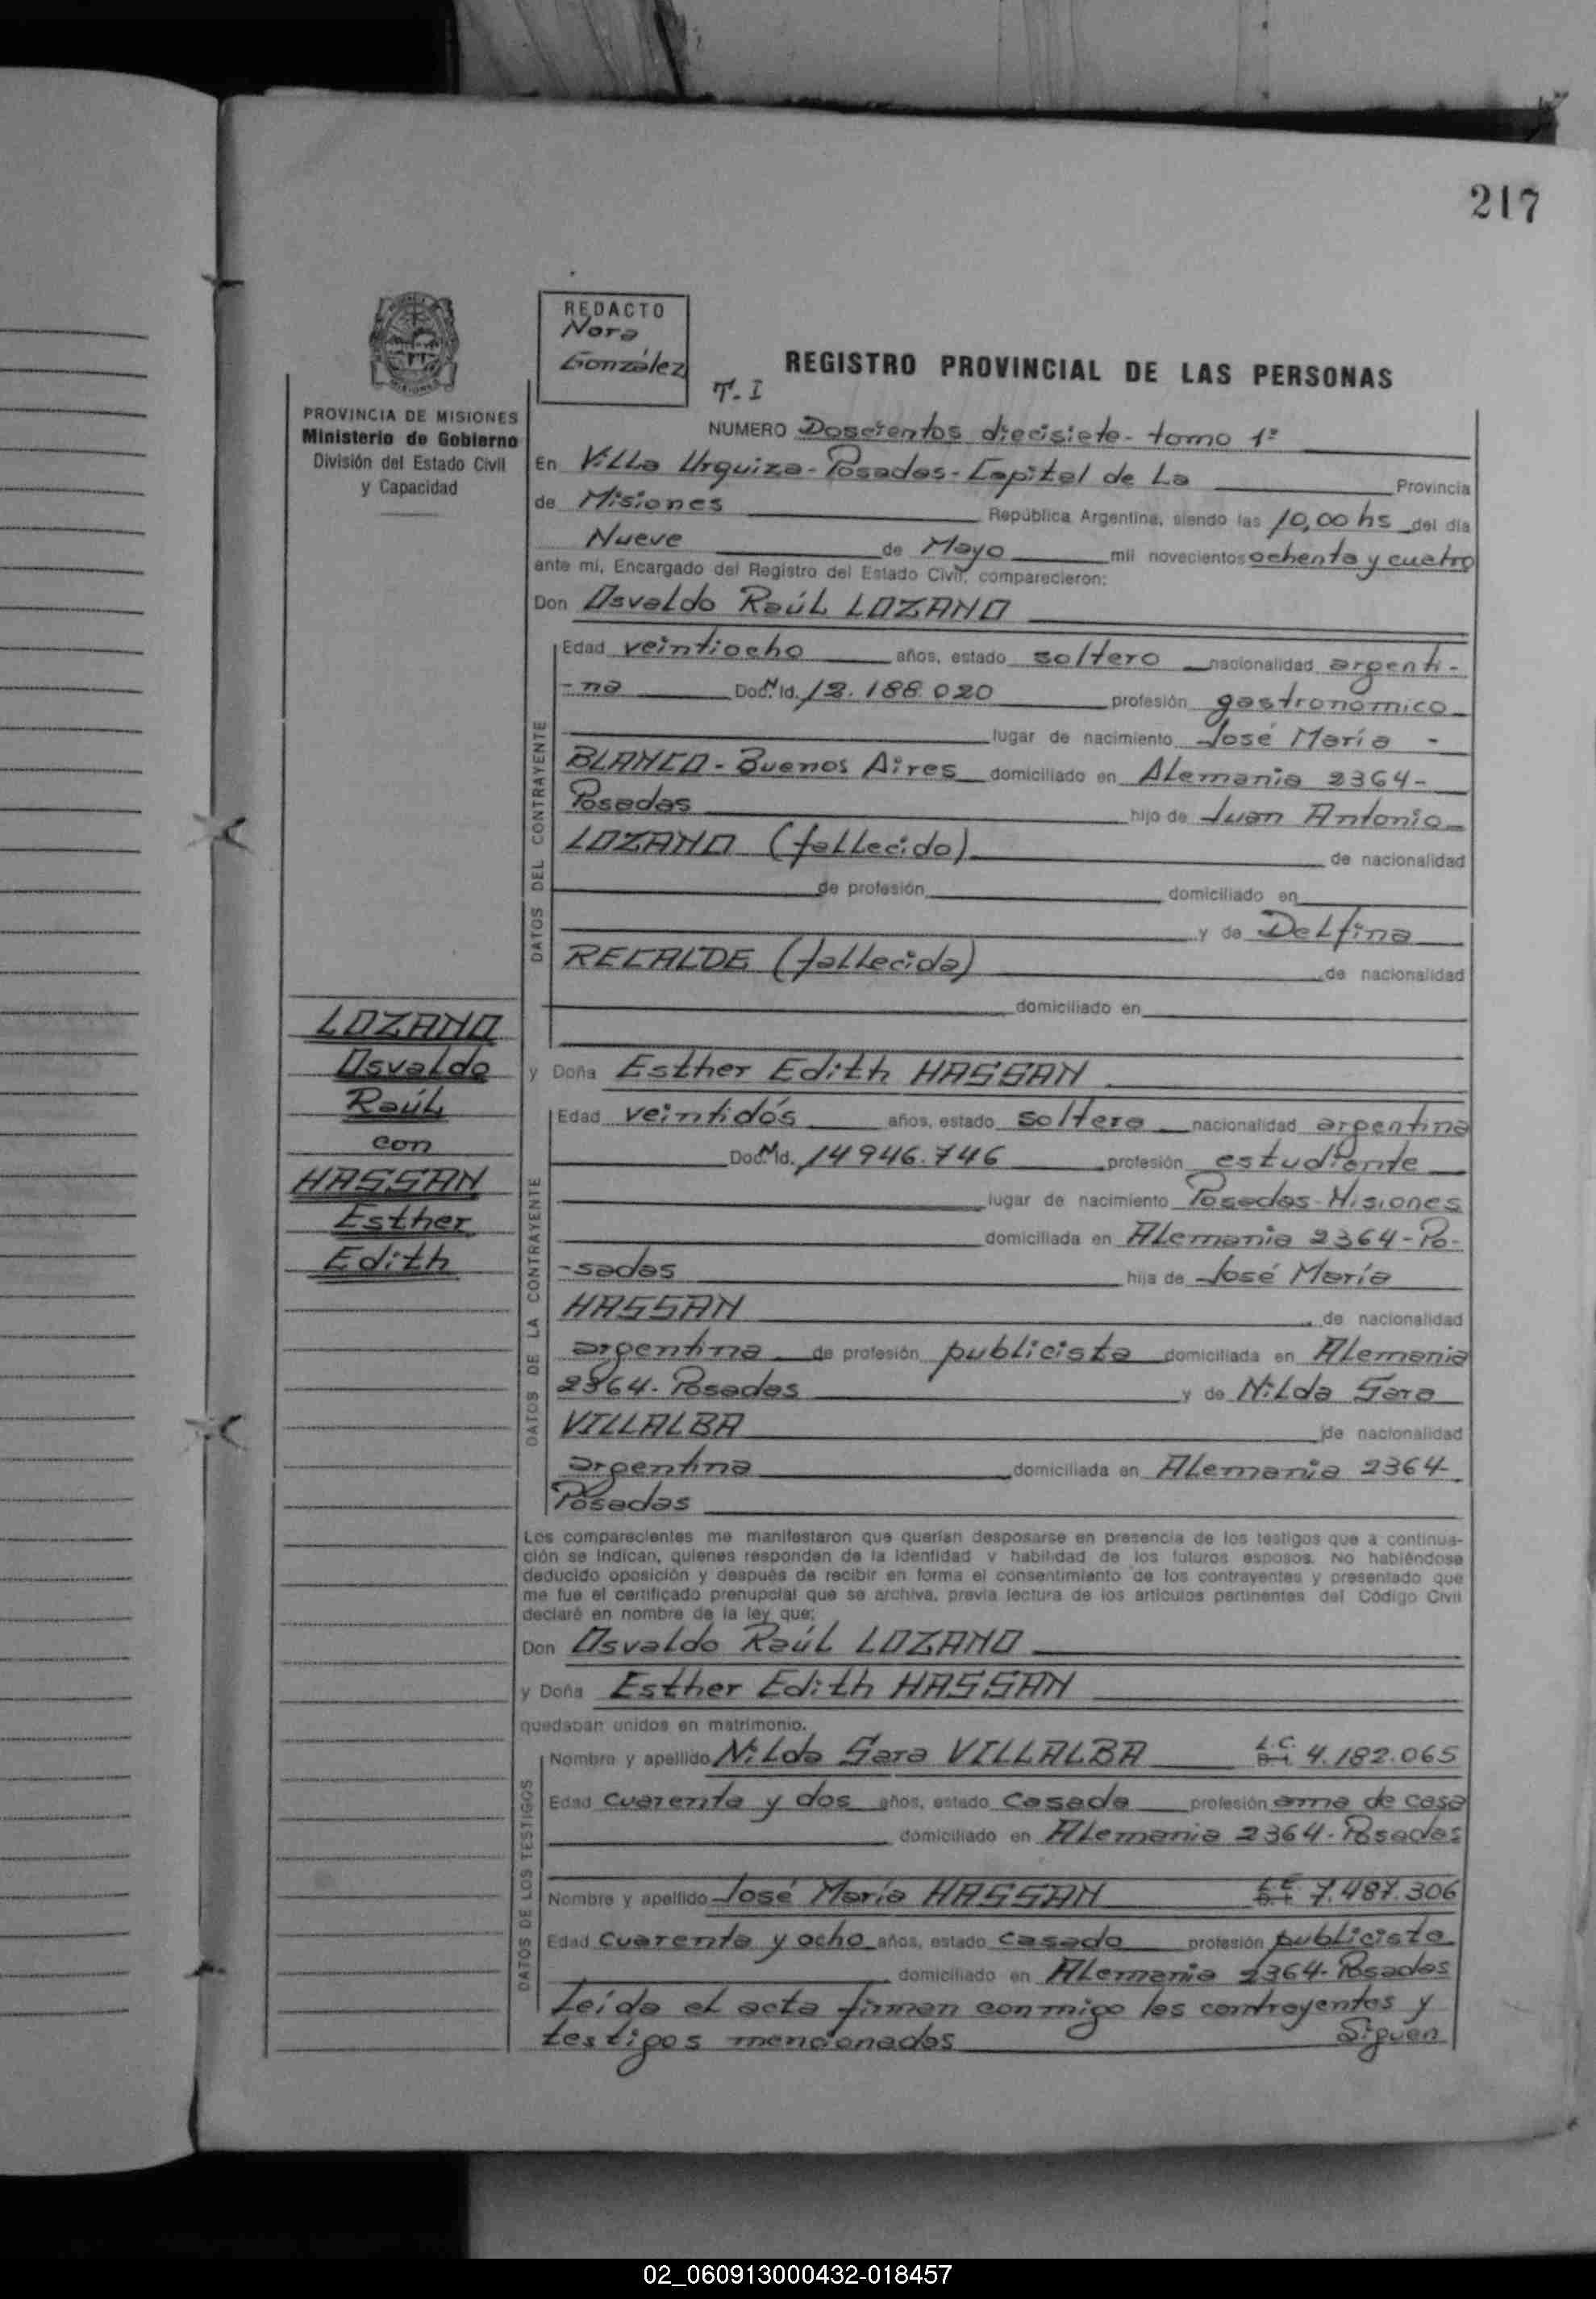 217
REDACTO
Nora
González
T. I
REGISTRO PROVINCIAL DE LAS PERSONAS
PROVINCIA DE MISIONES
Ministerio de Gobierno
División del Estado Civil
y Capacidad
NUMERO Doscientos diecisiete - tomo 1º
En Villa Urquiza - Posadas - Capital de La Provincia
de Misiones República Argentina, siendo las 10,00 hs del día
Nueve de Mayo mil novecientos ochenta y cuatro
ante mí, Encargado del Registro del Estado Civil, comparecieron:
Don Osvaldo Raúl LOZANO
DATOS DEL CONTRAYENTE
Edad veintiocho años, estado soltero nacionalidad argenti-
-na Doc. Id. 12.188.020 profesión gastronómico
lugar de nacimiento José María -
BLANCO - Buenos Aires domiciliado en Alemania 2364-
Posadas hijo de Juan Antonio
LOZANO (fallecido) de nacionalidad
de profesión domiciliado en
y de Delfina
RECALDE (fallecida) de nacionalidad
domiciliado en
LOZANO
Osvaldo
Raúl
con
HASSAN
Esther
Edith
y Doña Esther Edith HASSAN
DATOS DE LA CONTRAYENTE
Edad veintidós años, estado soltera nacionalidad argentina
Doc. Id. 14946.746 profesión estudiante
lugar de nacimiento Posadas - Misiones
domiciliada en Alemania 2364 - Po-
-sadas hija de José María
HASSAN de nacionalidad
argentina de profesión publicista domiciliada en Alemania
2364 - Posadas y de Nilda Sara
VILLALBA de nacionalidad
argentina domiciliada en Alemania 2364-
Posadas
Los comparecientes me manifestaron que querían desposarse en presencia de los testigos que a continua-
ción se indican, quienes responden de la identidad y habilidad de los futuros esposos. No habiéndose
deducido oposición y después de recibir en forma el consentimiento de los contrayentes y presentado que
me fue el certificado prenupcial que se archiva, previa lectura de los artículos pertinentes del Código Civil
declaré en nombre de la ley que:
Don Osvaldo Raúl LOZANO
y Doña Esther Edith HASSAN
quedaban unidos en matrimonio.
DATOS DE LOS TESTIGOS
Nombre y apellido Nilda Sara VILLALBA L.C. 4.182.065
Edad cuarenta y dos años, estado casada profesión ama de casa
domiciliado en Alemania 2364 - Posadas
Nombre y apellido José María HASSAN L.E. 7.487.306
Edad cuarenta y ocho años, estado casado profesión publicista
domiciliado en Alemania 2364 - Posadas
Leída el acta firman conmigo los contrayentes y
testigos mencionados Siguen
02_060913000432-018457